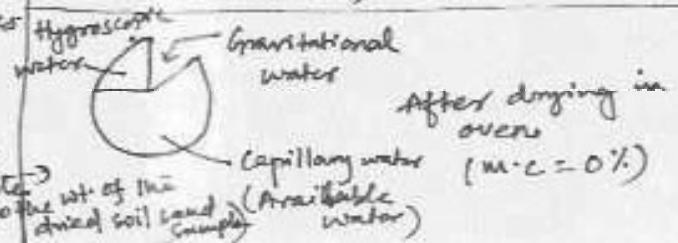 Hygroscopic
water
Gravitational
water
After drying in
oven
(m.c = 0%)
Capillary water
(Available
water)
the wt. of the
dried soil sand
sample)